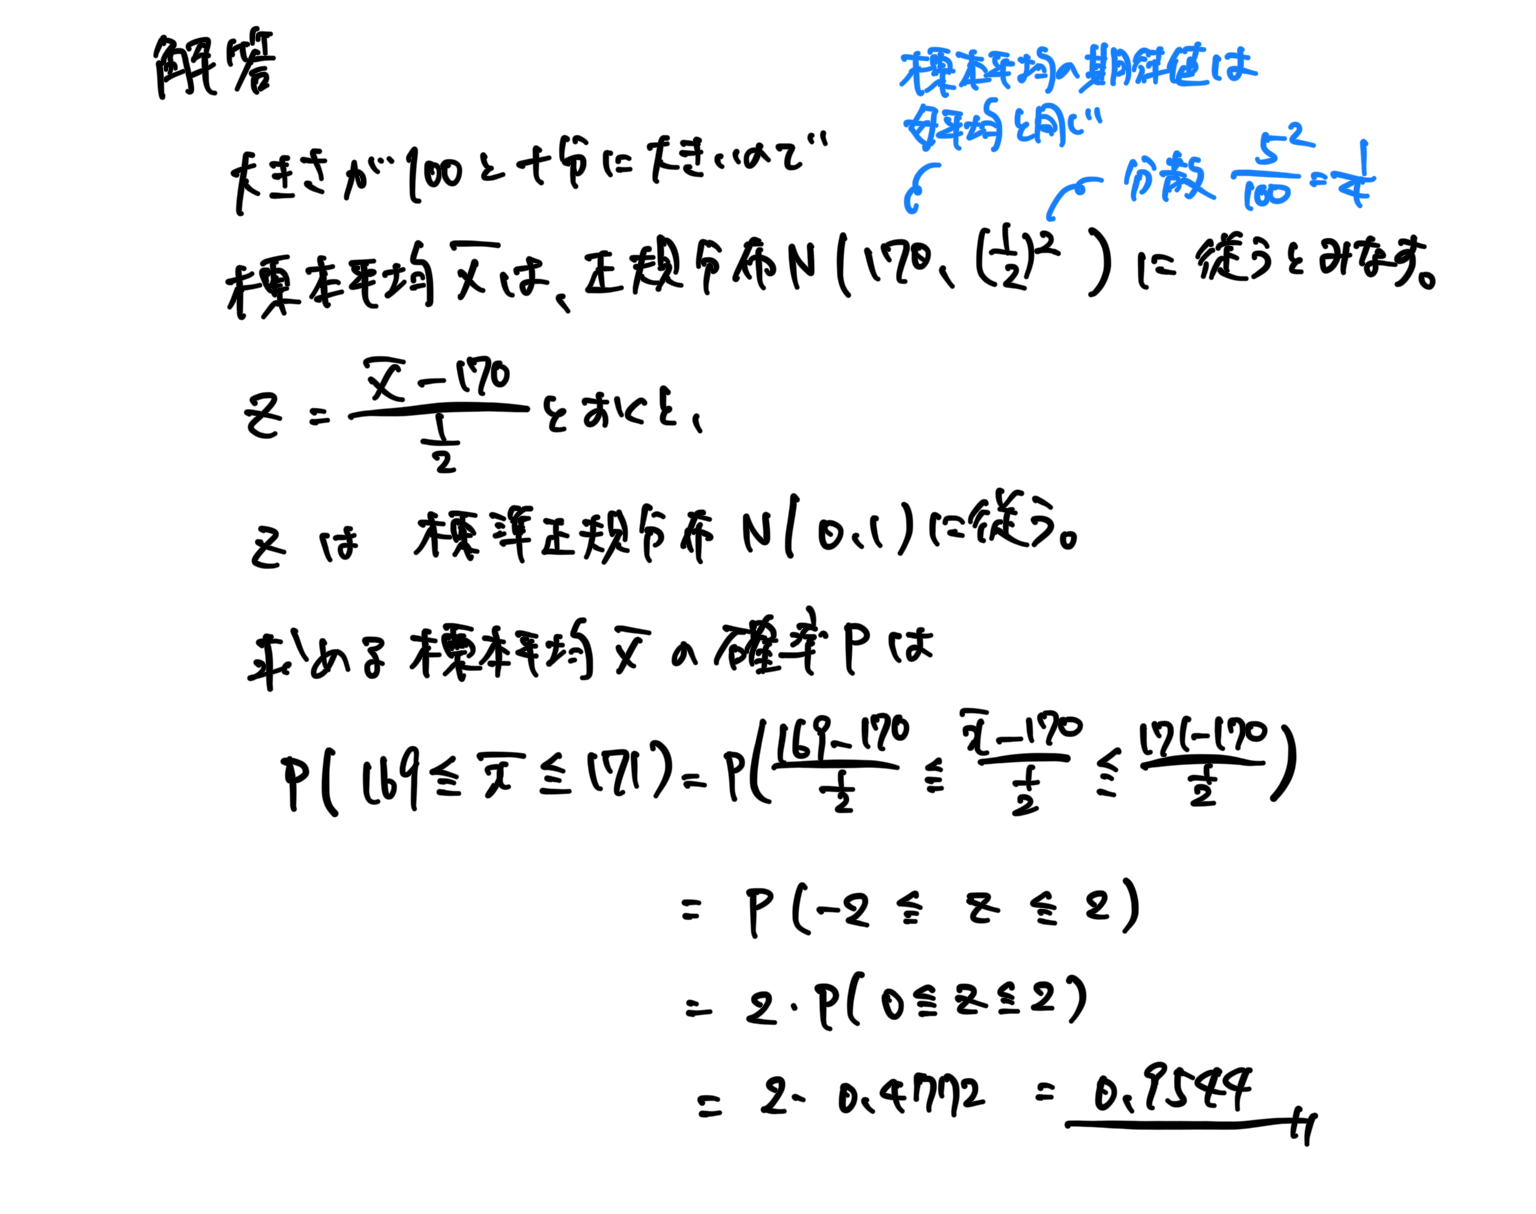 解答
標本平均の期待値は
母平均と同じ
分散 5²/100 = 1/4
大きさが100と十分に大きいので
標本平均 X̄ は、正規分布 N(170, (1/2)²) に従うとみなす。
Z = (X̄ - 170)/(1/2) とおくと、
Z は 標準正規分布 N(0,1) に従う。
求める標本平均 X̄ の確率 P は
P(169 ≦ X̄ ≦ 171) = P((169-170)/(1/2) ≦ (X̄-170)/(1/2) ≦ (171-170)/(1/2))
= P(-2 ≦ Z ≦ 2)
= 2・P(0 ≦ Z ≦ 2)
= 2・0.4772 = 0.9544